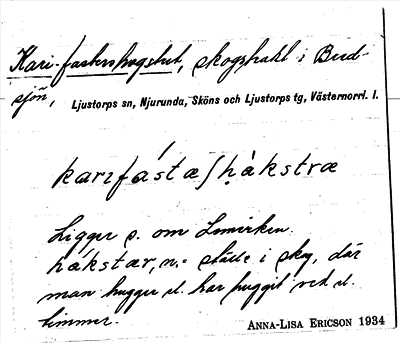 Kari-fastershugstret, skogstrakt i Bred-
sjön,
Ljustorps sn, Njurunda, Sköns och Ljustorps tg, Västernorrl. l.
karɪfástæʃhàkstræ
Ligger s. om
hákstær, n. = ställe i skog, där
man hugger el. har huggit ved el.
timmer.
ANNA-LISA ERICSON 1934